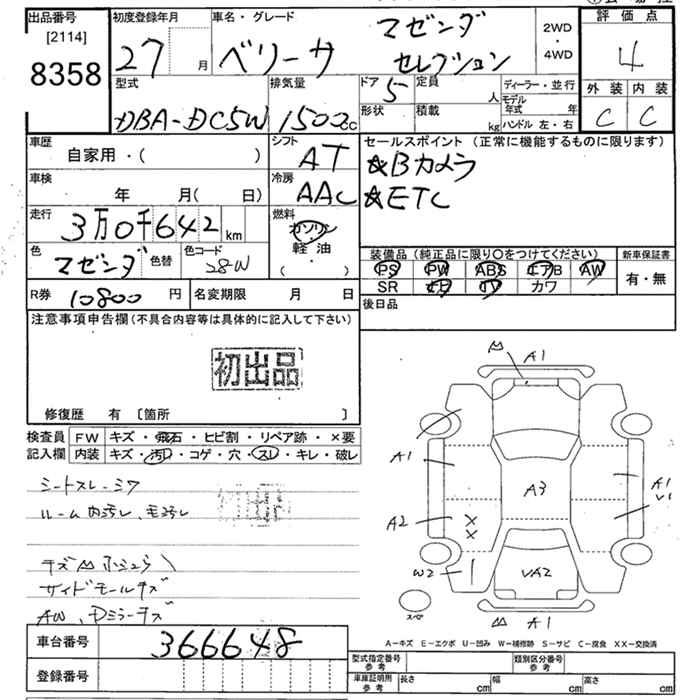 出品番号 初度登録年月 車名・グレード マゼンダ 2WD 評価点
[2114] ・
8358 27 月 ベリーサ セレクション 4WD 4
型式 排気量 ドア 5 定員 人 ディーラー・並行 外装 内装
DBA-DC5W 1500cc 形状 積載 kg モデル年式 年 C C
ハンドル 左・右
車歴 シフト セールスポイント(正常に機能するものに限ります)
自家用・( ) AT ☆Bカメラ
車検 冷房 ☆ETC
年 月( 日) AAC
走行 燃料
3万0千642km ガソリン
色 色替 色コード 軽・油
マゼンダ 28W ( )
装備品(純正品に限り〇をつけてください) 新車保証書
PS PW ABS エアB AW 有・無
SR カワ
R券 10800円 名変期限 月 日 後日品
注意事項申告欄(不具合内容等は具体的に記入して下さい)
初出品
修復歴 有 [箇所 ]
検査員 FW キズ・飛石・ヒビ割・リペア跡・×要
記入欄 内装 キズ・汚れ・コゲ・穴・スレ・キレ・破レ
シートスレ・シワ
ルーム内汚レ、毛汚レ
サイドモールキズ
AW、Dミラーキズ
A1
A1 A3 A1
V1
A2 X
X
W2 VA2
スペア A1
A-キズ E-エクボ U-凹み W-補修跡 S-サビ C-腐食 XX-交換済
車台番号 366648
登録番号
型式指定番号 参考 類別区分番号 参考
車庫証明用 参考 長さ cm 幅 cm 高さ cm